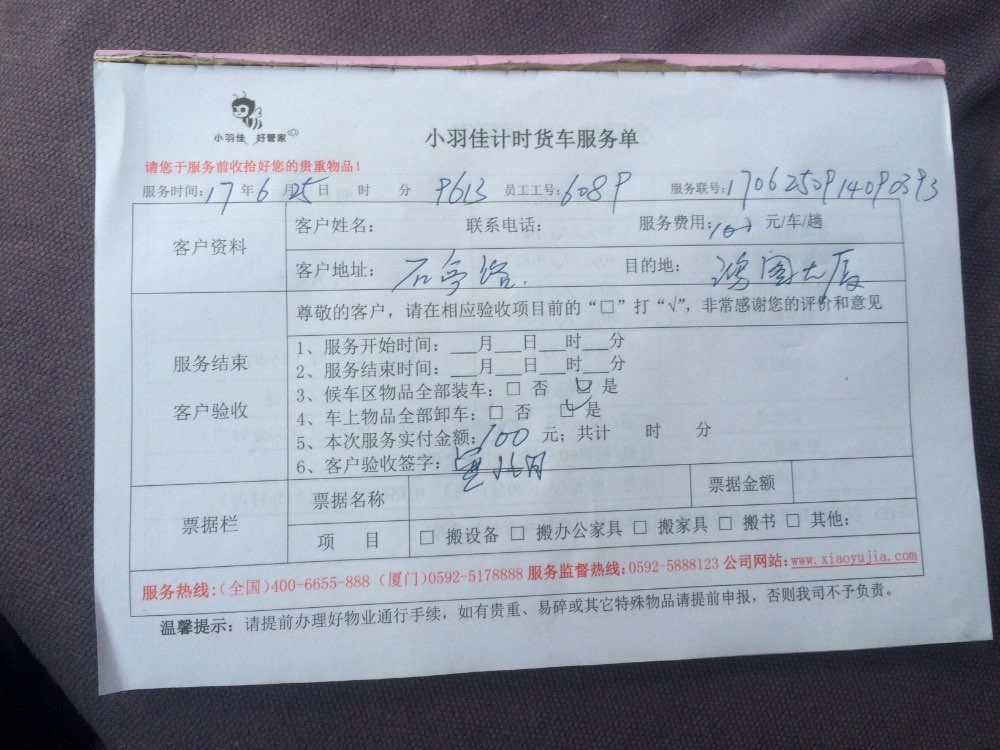 小羽佳 好管家
小羽佳计时货车服务单
请您于服务前收拾好您的贵重物品！
服务时间：17年6月25日 时 分 9613 员工工号：6089 服务联号：1706250914090393
客户资料
客户姓名： 联系电话： 服务费用：100 元/车/趟
客户地址： 石亭路. 目的地： 鸿图大厦
服务结束
客户验收
尊敬的客户，请在相应验收项目前的“□”打“√”，非常感谢您的评价和意见
1、服务开始时间：___月___日___时___分
2、服务结束时间：___月___日___时___分
3、候车区物品全部装车：□ 否 □ 是
4、车上物品全部卸车：□ 否 □ 是
5、本次服务实付金额：100 元；共计 时 分
6、客户验收签字：
票据栏
票据名称 票据金额
项 目 □ 搬设备 □ 搬办公家具 □ 搬家具 □ 搬书 □ 其他：
服务热线：（全国）400-6655-888（厦门）0592-5178888 服务监督热线：0592-5888123 公司网站：www.xiaoyujia.com
温馨提示：请提前办理好物业通行手续，如有贵重、易碎或其它特殊物品请提前申报，否则我司不予负责。